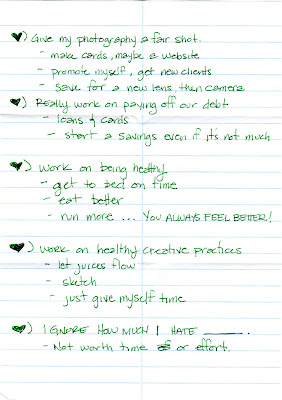 ♥) Give my photography a fair shot.
- make cards, maybe a website
- promote myself, get new clients
- save for a new lens, then camera
♥) Really work on paying off our debt
- loans & cards
- start a savings even if it's not much
♥) Work on being healthy
- get to bed on time
- eat better
- run more ... YOU ALWAYS FEEL BETTER!
♥) Work on healthy creative practices
- let juices flow
- sketch
- just give myself time
♥) IGNORE HOW MUCH I HATE ______.
- Not worth time or effort.